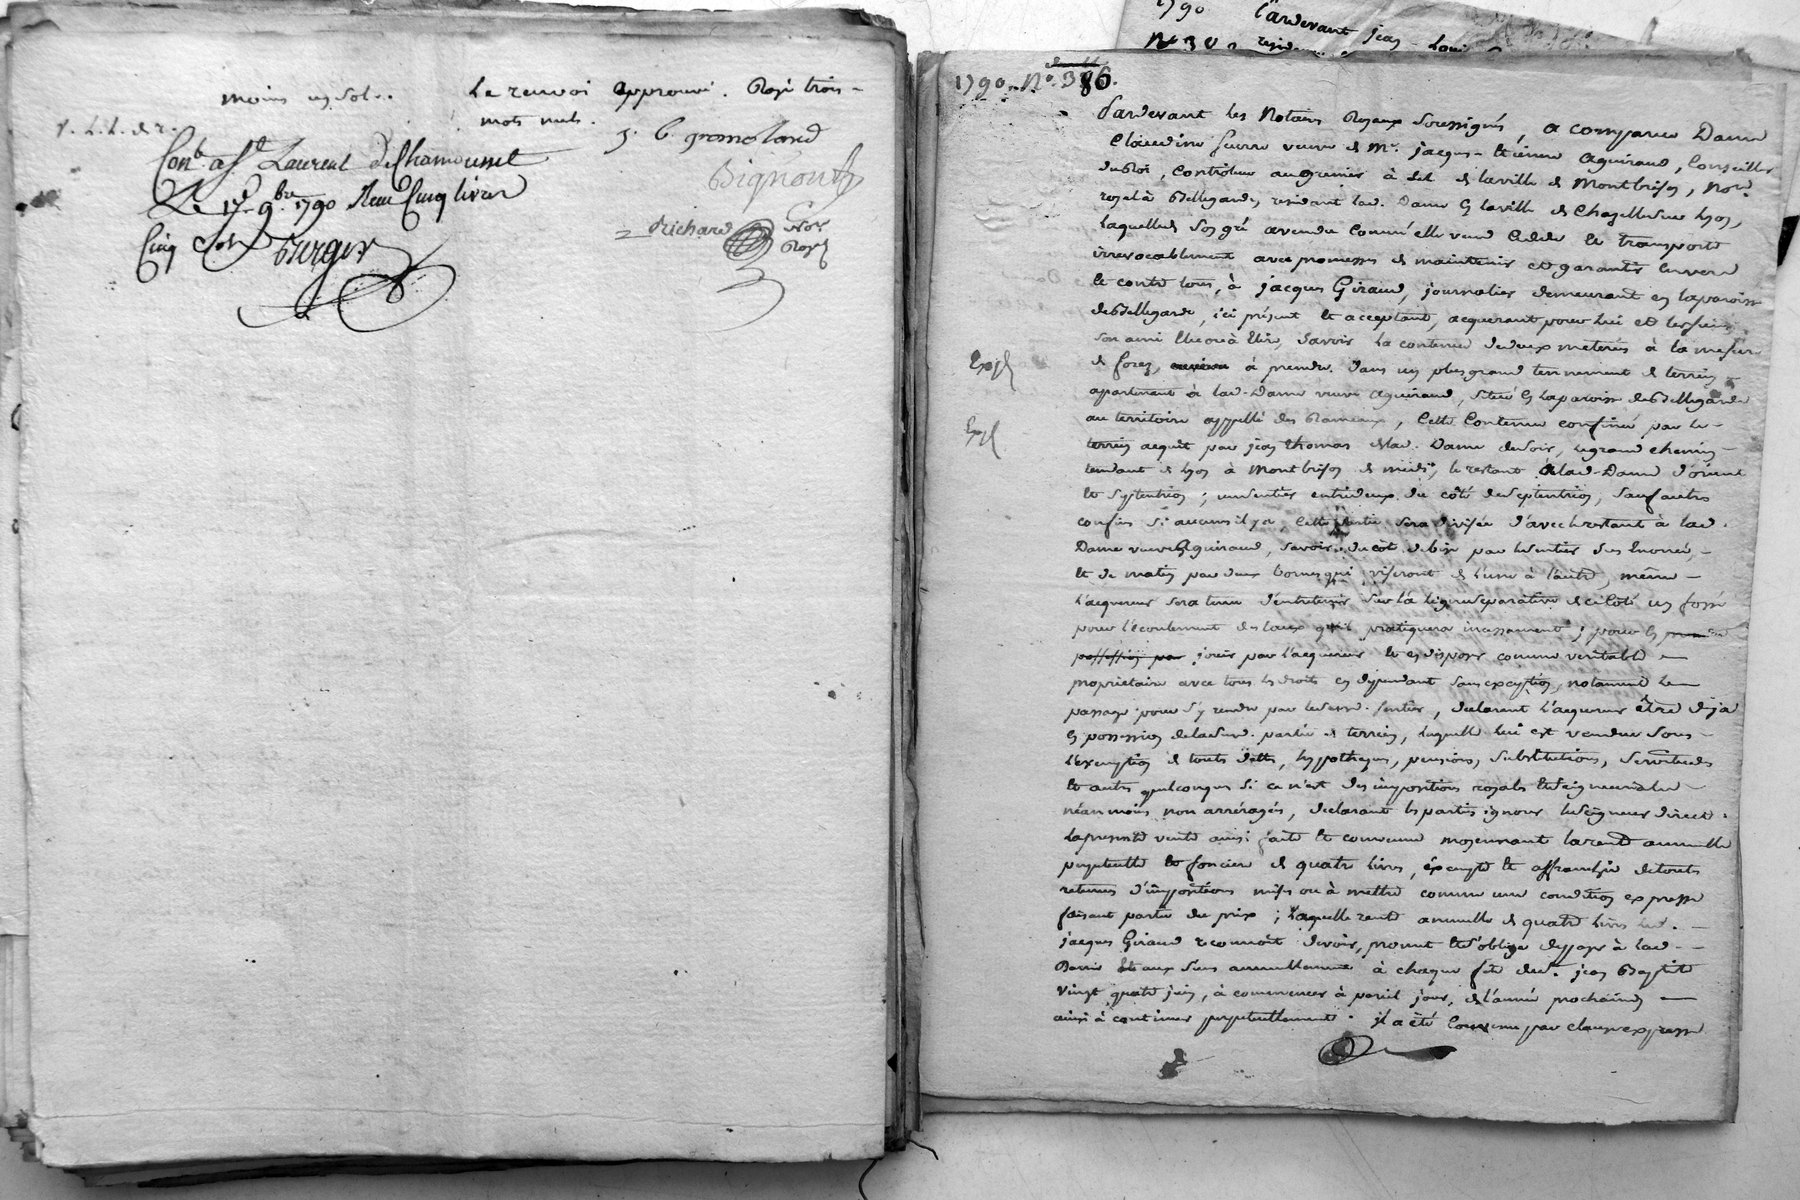 moins un sol.
Le renvoi approuvé. Rayé trois
mots nuls.
J. B. gromoland
Con.é a St Laurent de Chamousset
Le 17 9.bre 1790 Reçu Cinq livres
Cinq sols Berger
Richard No.re
Royal
1790
Pardevant jean Louis
N° 38
1790. N° 386.
Pardevant les Notaires Royaux soussignés, a comparu Dame
Claudine veuve de Mr. jacques-étienne Aguiraud, Conseiller
du Roi, Controleur au grenier à sel de la ville de Montbrison, No.re
royal à Bellegarde, residant lad. Dame en la ville de Chazelle sur Lyon,
laquelle de son gré a vendu comme elle vend cede et transporte
irrevocablement avec promesses de maintenir et garantir envers
et contre tous, à jacques Giraud, journalier demeurant en la paroisse
de Bellegarde, ici présent et acceptant, acquerant pour lui et les siens,
son ami Elu ou à Elire, Savoir la contenue de deux meterés à la mesure
de forez, à prendre dans un plus grand tennement de terrein
apartenant à lad. Dame veuve Aguiraud, situé en la paroisse de Bellegarde
au territoire appellé des Rameaux, Cette Contenue confinée par le
terrein acquit par jean thomas de lad. Dame de soir, le grand chemin
tendant de Lyon à Montbrison de midi, le restant à lad. Dame d'orient
et Septentrion; un sentier entredeux du côté de septentrion, sauf autres
confins si aucuns il y a, Cette partie sera divisée d'avec le restant à lad.
Dame veuve Aguiraud, savoir du côté de bise par le sentier sus énoncé,
et de matin par deux bornes qui viseront de l'une à l'autre, même
l'acquereur sera tenu d'entretenir sur la ligne separative de ce côté un fossé
pour l'écoulement des eaux qu'il pratiquera incessamment; pour en
possession par jouir par l'acquereur et en disposer comme veritable
proprietaire avec tous les droits en dependant sans exception, notament le
passage pour s'y rendre par le susd. sentier, declarant l'acquereur être deja
en possession de la susd. partie de terrein, laquelle lui est vendue sous
l'exemption de touts dettes, hypotheques, pensions, substitutions, servitudes
et autres quelconques si ce n'est des impositions royales et seigneuriales
néanmoins non arréragés, declarant les parties ignorer le seigneur direct.
La presente vente ainsi faite et convenue moyennant la rente annuelle
perpetuelle et fonciere de quatre livres, éxempte et affranchie de toutes
retenues d'impositions mises ou à mettre comme une condition expresse
faisant partie du prix; laquelle rente annuelle de quatre livres led.
jacques Giraud reconnoit devoir, promet et s'oblige de payer à lad.
Dame et aux siens annuellement à chaque fete de St. jean Baptiste
vingt quatre juin, à commencer à pareil jour de l'année prochaine
ainsi à continuer perpetuellement. il a été Convenu par clause expresse